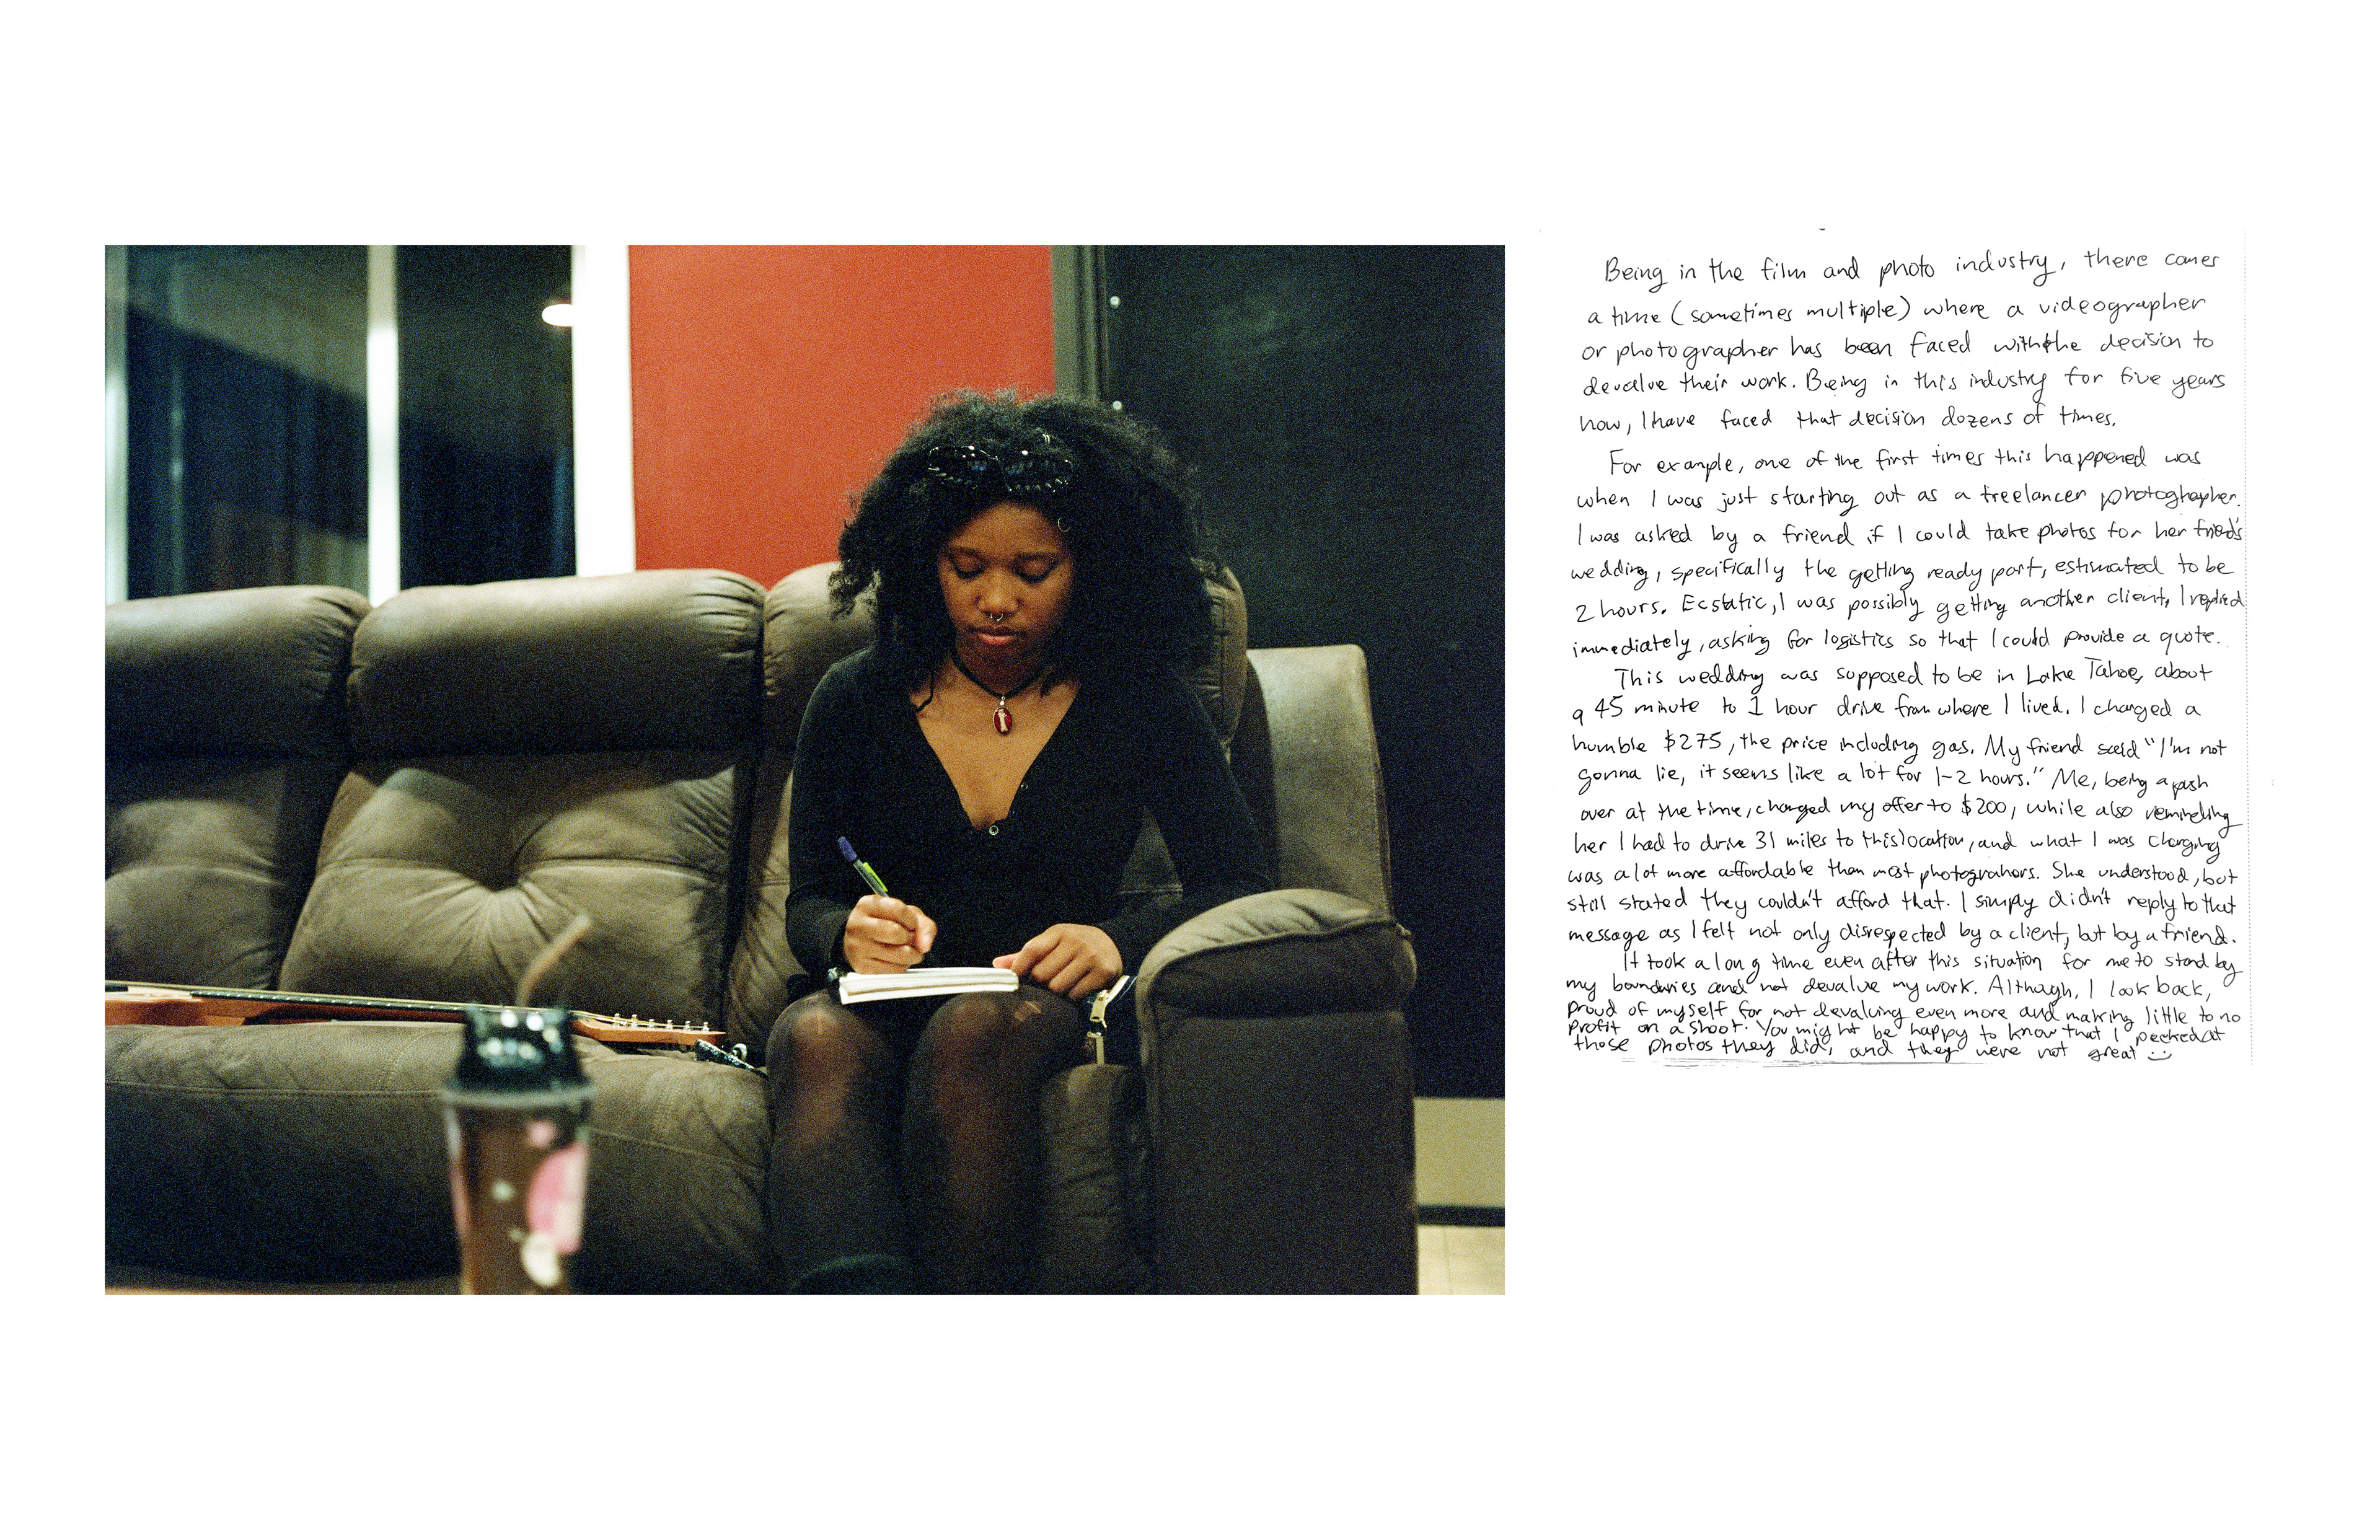 Being in the film and photo industry, there comes
a time (sometimes multiple) where a videographer
or photographer has been faced with the decision to
devalue their work. Being in this industry for five years
now, I have faced that decision dozens of times.
For example, one of the first times this happened was
when I was just starting out as a freelancer photographer.
I was asked by a friend if I could take photos for her friend's
wedding, specifically the getting ready part, estimated to be
2 hours. Ecstatic, I was possibly getting another client, I replied
immediately, asking for logistics so that I could provide a quote.
This wedding was supposed to be in Lake Tahoe, about
a 45 minute to 1 hour drive from where I lived. I charged a
humble $275, the price including gas. My friend said "I'm not
gonna lie, it seems like a lot for 1-2 hours." Me, being a push
over at the time, changed my offer to $200, while also reminding
her I had to drive 31 miles to this location, and what I was charging
was a lot more affordable than most photograhors. She understood, but
still stated they couldn't afford that. I simply didn't reply to that
message as I felt not only disrespected by a client, but by a friend.
It took a long time even after this situation for me to stand by
my boundaries and not devalue my work. Although, I look back,
proud of myself for not devaluing even more and making little to no
profit on a shoot. You might be happy to know that I peeked at
those photos they did, and they were not great :)